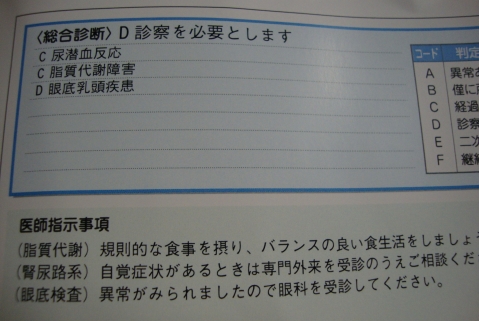 〈総合診断〉D 診察を必要とします
C 尿潜血反応
C 脂質代謝障害
D 眼底乳頭疾患
コード 判定
A 異常
B 僅に
C 経過
D 診察
E 二次
F 継続
医師指示事項
(脂質代謝) 規則的な食事を摂り、バランスの良い食生活をしましょう
(腎尿路系) 自覚症状があるときは専門外来を受診のうえご相談くだ
(眼底検査) 異常がみられましたので眼科を受診してください。